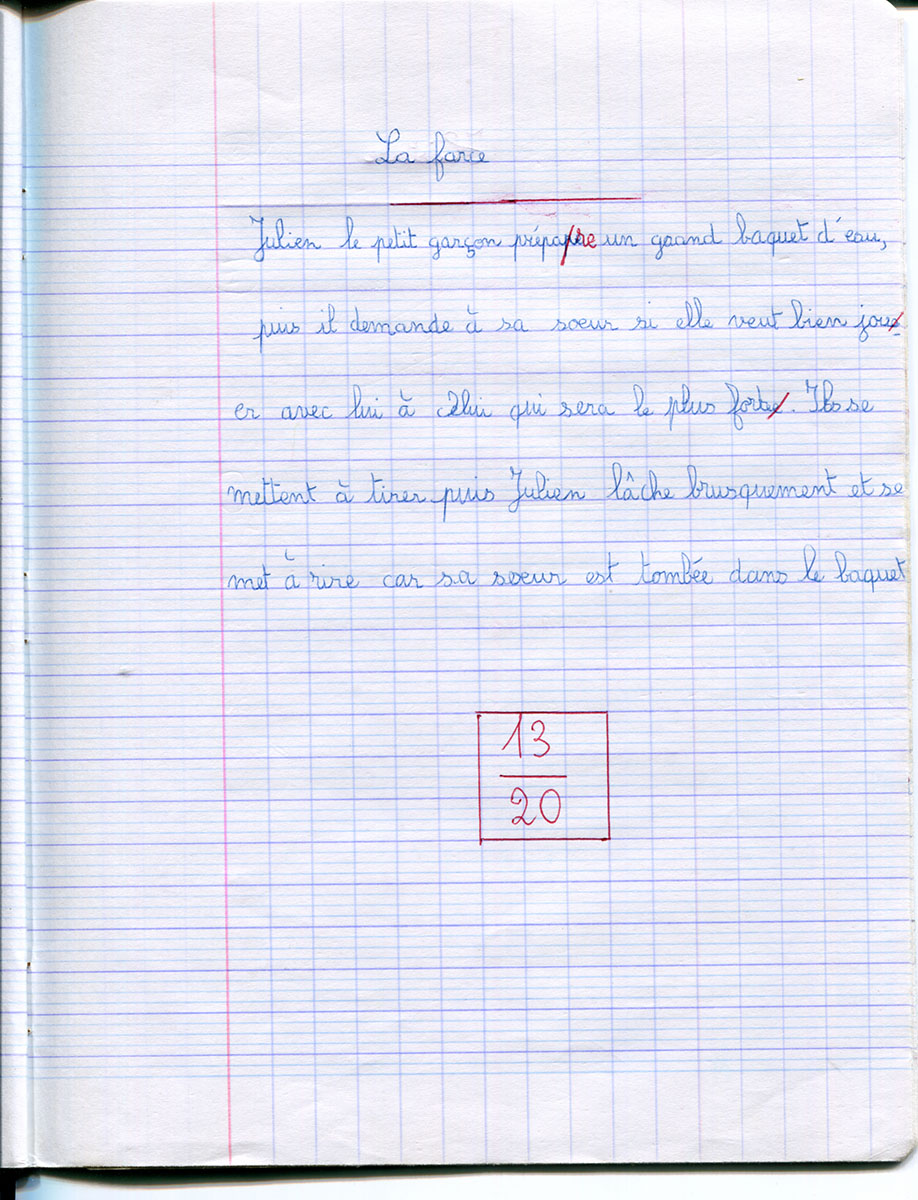 La farce
Julien le petit garçon prépare un grand baquet d'eau,
puis il demande à sa soeur si elle veut bien jou-
er avec lui à celui qui sera le plus forte. Ils se
mettent à tirer puis Julien lâche brusquement et se
met à rire car sa soeur est tombée dans le baquet
13
20